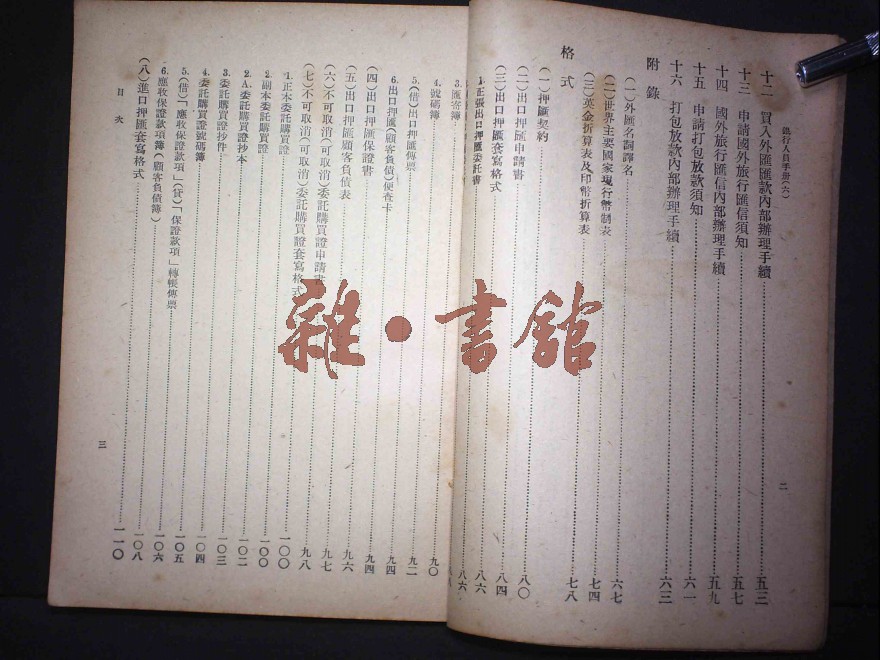 銀行人員手册(六)
二
十二 買入外匯匯款內部辦理手續 五三
十三 申請國外旅行匯信須知 五七
十四 國外旅行匯信內部辦理手續 五九
十五 申請打包放款須知 六一
十六 打包放款內部辦理手續 六三
附錄
(一)外匯名詞譯名 六七
(二)世界主要國家現行幣制表 七四
(三)英金折算表及印幣折算表 七八
格式
(一)押匯契約
(二)出口押匯申請書 八〇
(三)出口押匯套寫格式 八四
1.正張出口押匯委託書 八六
3.匯寄簿
4.號碼簿 九〇
5.(借)出口押匯傳票 九二
6.出口押匯(顧客負債)便查卡 九四
(四)出口押匯保證書 九四
(五)出口押匯顧客負債表 九六
(六)不可取消(可取消)委託購買證申請書 九七
(七)不可取消(可取消)委託購買證套寫格式 九八
1.正本委託購買證 一〇〇
2.副本委託購買證 一〇〇
2.A.委託購買證抄本 一〇二
3.委託購買證抄件 一〇三
4.委託購買證號碼簿 一〇四
5.(借)「應收保證款項」(貸)「保證款項」轉帳傳票 一〇五
6.應收保證款項簿(顧客負債簿) 一〇六
(八)進口押匯套寫格式 一〇八
一一〇
目次
三
雜·書館